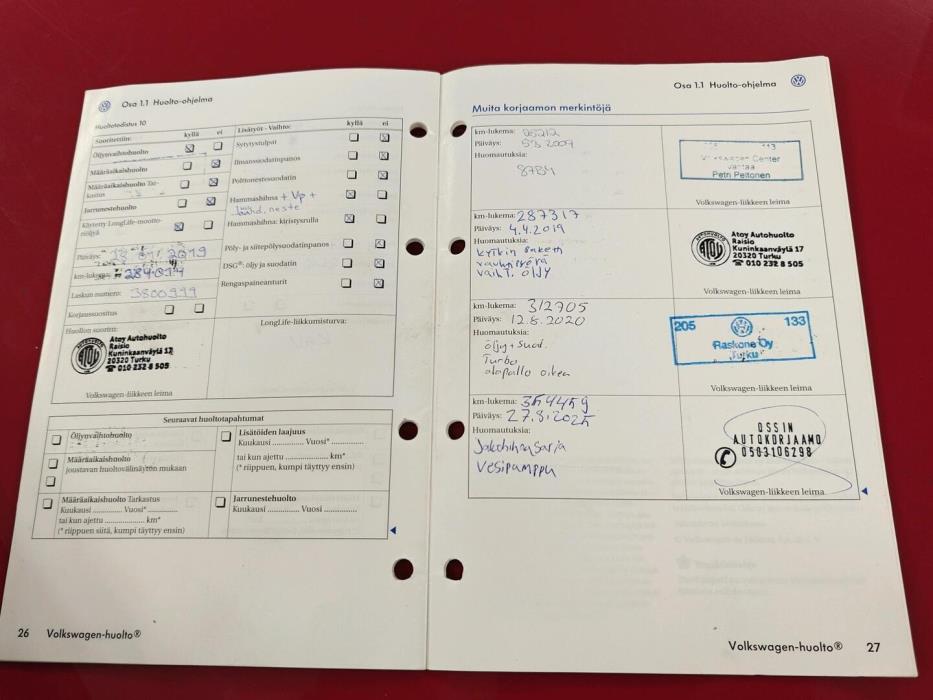 Osa 1.1 Huolto-ohjelma
Huoltotodistus 10
Suoritettiin: kyllä ei
Öljynvaihtohuolto
Määräaikaishuolto
Määräaikaishuolto Tar-
kastus
Jarrunestehuolto
Käytetty LongLife-mootto-
riöljyä
Päiväys: 2019
km-lukema: 284014
Laskun numero: 3800999
Korjaussuositus
Huollon suoritti:
Atoy Autohuolto
Raisio
Kuninkaanväylä 17
20320 Turku
☎ 010 232 8 505
Volkswagen-liikkeen leima
Lisätyöt - Vaihto: kyllä ei
Sytytystulpat
Ilmansuodatinpanos
Polttonestesuodatin
Hammashihna + Vp +
jäähd.neste
Hammashihna: kiristysrulla
Pöly- ja siitepölysuodatinpanos
DSG®: öljy ja suodatin
Rengaspaineanturit
LongLife-liikkumisturva:
Seuraavat huoltotapahtumat
Öljynvaihtohuolto
Määräaikaishuolto
joustavan huoltovälinäytön mukaan
Määräaikaishuolto Tarkastus
Kuukausi .............. Vuosi* ..............
tai kun ajettu ...................... km*
(* riippuen siitä, kumpi täyttyy ensin)
Lisätöiden laajuus
Kuukausi .............. Vuosi* ..............
tai kun ajettu ...................... km*
(* riippuen, kumpi täyttyy ensin)
Jarrunestehuolto
Kuukausi .............. Vuosi ..............
26 Volkswagen-huolto®
Osa 1.1 Huolto-ohjelma
Muita korjaamon merkintöjä
km-lukema:
Päiväys: 2007
Huomautuksia:
Volkswagen Center
Vantaa
Petri Peltonen
Volkswagen-liikkeen leima
km-lukema: 287317
Päiväys: 4.4.2019
Huomautuksia:
kytkin paketti
vauhtipyörä
vaiht. öljy
Atoy Autohuolto
Raisio
Kuninkaanväylä 17
20320 Turku
☎ 010 232 8 505
Volkswagen-liikkeen leima
km-lukema: 312705
Päiväys: 12.8.2020
Huomautuksia:
öljy + suod.
Turbo
alapallo oikea
205 133
Raskone Oy
Turku
Volkswagen-liikkeen leima
km-lukema: 354459
Päiväys: 27.8.2025
Huomautuksia:
Jakohihnasarja
Vesipumppu
OSSIN
AUTOKORJAAMO
0503106298
Volkswagen-liikkeen leima
Volkswagen-huolto® 27